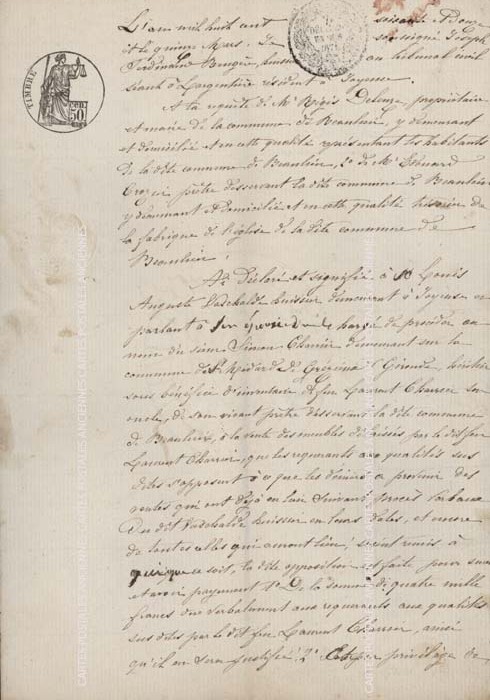 L'an mil huit cent soixante Douze
et le quinze Mars, Je soussigné Joseph
Ferdinand huissier au tribunal civil
séant à Largentière résident à Joyeuse.
TIMBRE
50 CEN.
A la requête de Mr Régis Deleuze, propriétaire
et maire de la commune de Beaulieu, y demeurant
et domicilié et en cette qualité représentant les habitants
de la dite commune de Beaulieu, 2o de Mr Edouard
Crozier prêtre desservant la dite commune de Beaulieu
y demeurant et domicilié et en cette qualité de
la fabrique de l'église de la dite commune de
Beaulieu;
Ai Déclaré et signifié à Mr Louis
Auguste Vadchalde huissier demeurant à Joyeuse en
parlant à son épouse chargé de procéder au
nom du sieur Simon Charrier demeurant sur la
commune de St Médard de Gironde, héritier
sous bénéfice d'inventaire de feu Laurent Charrier son
oncle, de son vivant prêtre desservant la dite commune
de Beaulieu, à la vente des meubles délaissés par le dit feu
Laurent Charrier, que les requérants aux qualités sus
dites s'opposent à ce que les deniers à provenir des
ventes qui ont déjà eu lieu suivant procès verbaux
du dit Vadchalde huissier en leurs dates, et encore
de toutes celles qui auront lieu, soient remis à
qui que ce soit, la dite opposition est faite pour sureté
et avoir payement 1o De la somme de quatre mille
francs due verbalement aux requérants aux qualités
sus dites par le dit feu Laurent Charrier, ainsi
qu'il en sera justifié; 2o privilège de